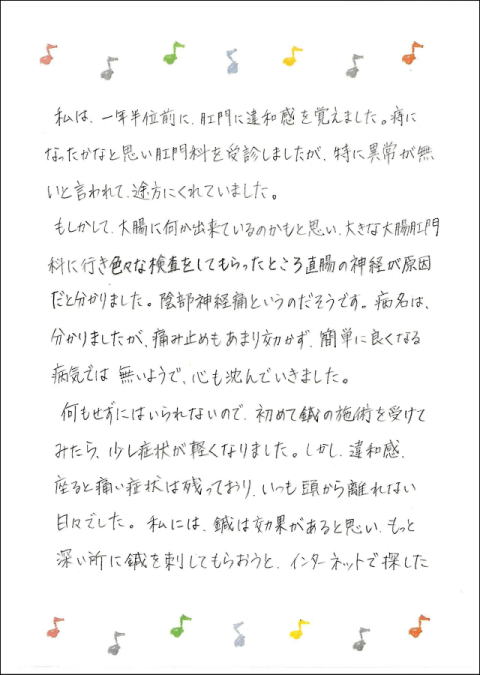 私は、一年半位前に、肛門に違和感を覚えました。痔に
なったかなと思い肛門科を受診しましたが、特に異常が無
いと言われて、途方にくれていました。
もしかして、大腸に何か出来ているのかもと思い、大きな大腸肛門
科に行き色々な検査をしてもらったところ直腸の神経が原因
だと分かりました。陰部神経痛というのだそうです。病名は、
分かりましたが、痛み止めもあまり効かず、簡単に良くなる
病気では無いようで、心も沈んでいきました。
何もせずにはいられないので、初めて鍼の施術を受けて
みたら、少し症状が軽くなりました。しかし、違和感、
座ると痛い症状は残っており、いつも頭から離れない
日々でした。私には、鍼は効果があると思い、もっと
深い所に鍼を刺してもらおうと、インターネットで探した